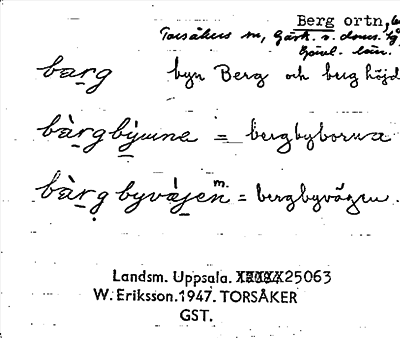 Berg ortn,
Torsåkers sn, Gästr. ö. doms.
Gävl. län.
barg byn Berg och berg höjd
bàrgbỳu̇nɐ = bergbyborna
bàrg byvä̀jen m. = bergbyvägen.
Landsm. Uppsala. 25063
W. Eriksson.1947. TORSÅKER
GST.